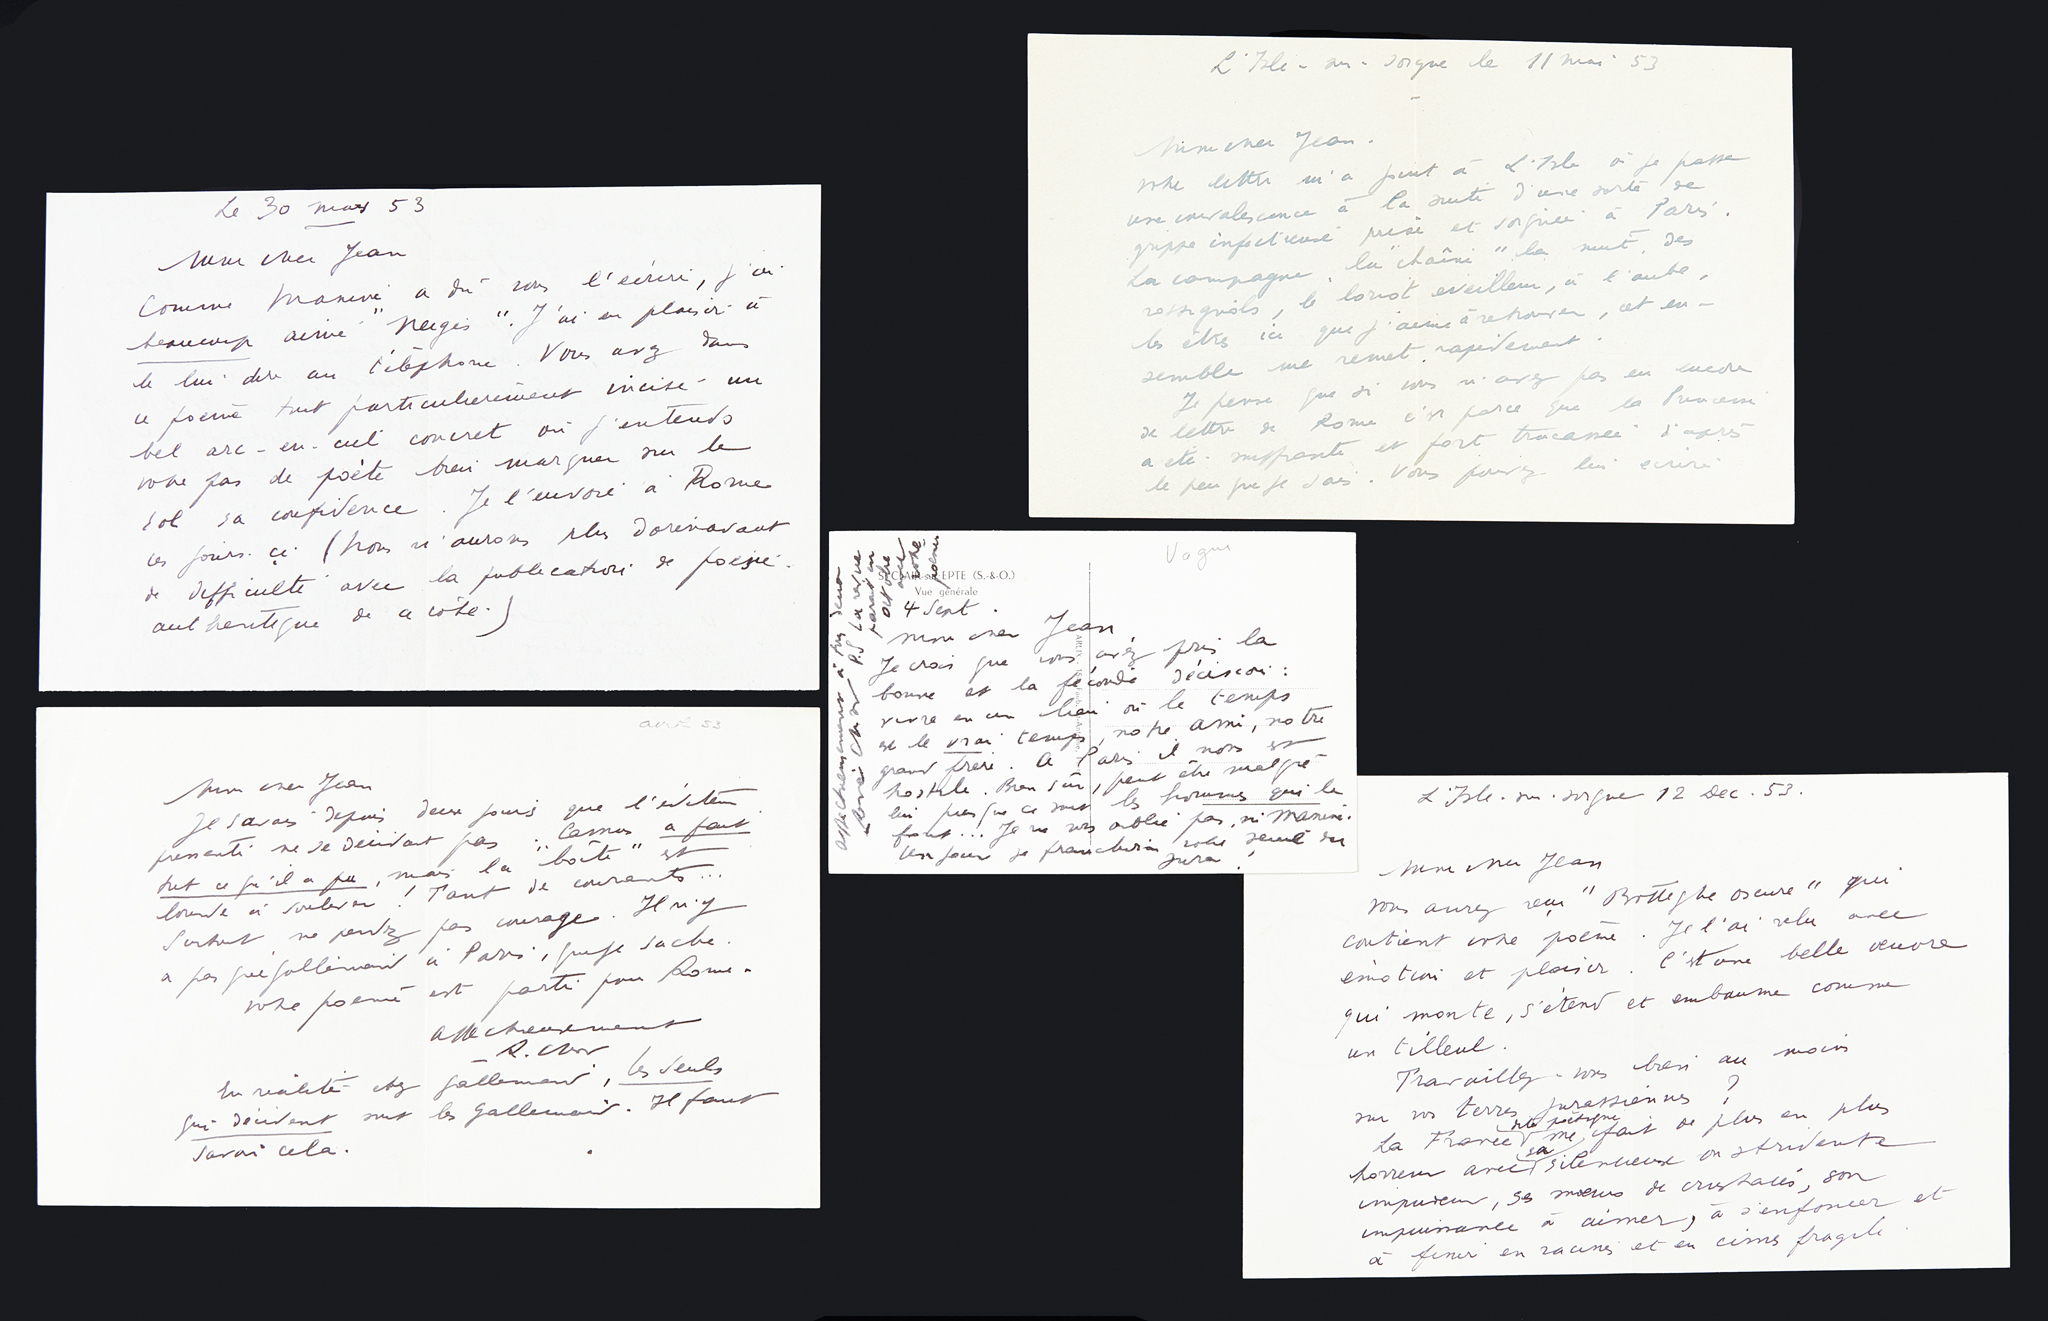 Le 30 mars 53
Mon cher Jean
Comme Maxime a dû vous l'écrire, j'ai
beaucoup aimé "Neiges". J'ai eu plaisir à
le lui dire au téléphone. Vous avez dans
ce poème tout particulièrement incisé un
bel arc-en-ciel concret où j'entends
votre pas de poète bien marquer sur le
sol sa confidence. Je l'envoie à Rome
ces jours-ci (Nous n'aurons plus dorénavant
de difficulté avec la publication de poésie
authentique de ce côté.)
avril 53
Mon cher Jean
Je savais depuis deux jours que l'éditeur
pressenti ne se décidait pas. Camus a fait
tout ce qu'il a pu, mais la "boîte" est
lourde à soulever ! Tant de courants...
Surtout, ne perdez pas courage. Il n'y
a pas que Gallimard à Paris, que je sache.
Votre poème est parti pour Rome.
Affectueusement
R. Char
En réalité chez Gallimard, les seuls
qui décident sont les Gallimard. Il faut
savoir cela.
L'Isle-sur-Sorgue le 11 mai 53
Mon cher Jean.
Votre lettre m'a joint à L'Isle où je passe
une convalescence à la suite d'une sorte de
grippe infectieuse prise et soignée à Paris.
La campagne, la "chaîne" la nuit, des
rossignols, le loriot éveilleur, à l'aube,
les êtres ici que j'aime à retrouver, cet en-
semble me remet rapidement.
Je pense que si vous n'avez pas eu encore
de lettre de Rome c'est parce que la Princesse
a été souffrante et fort tracassée d'après
le peu que je sais. Vous pouvez lui écrire
Vogue
ST-CLAIR-sur-EPTE (S.-&-O.)
Vue générale
4 Sept.
Mon cher Jean
Je crois que vous avez pris la
bonne et la féconde décision :
vivre en un lieu où le temps
est le vrai temps, notre ami, notre
grand frère. A Paris il nous est
hostile. Bien sûr, peut être malgré
lui puisque ce sont les hommes qui le
font... Je ne vous oublie pas, ni Maxime.
Un jour je franchirai votre seuil du
Jura !
Affectueusement à vous deux
René Char
P.S La revue
paraît en
octobre
avec
votre
poème
L'Isle-sur-Sorgue 12 Dec. 53.
Mon cher Jean
Vous aurez reçu "Botteghe oscure" qui
contient votre poème. Je l'ai relu avec
émotion et plaisir. C'est une belle oeuvre
qui monte, s'étend et embaume comme
un tilleul.
Travaillez-vous bien au moins
sur vos terres jurassiennes ?
La France poétique me fait de plus en plus
horreur avec sa silencieuse ou stridente
impudeur, ses moeurs de crustacés, son
impuissance à aimer, à s'enfoncer et
à finir en racines et en cimes fragile